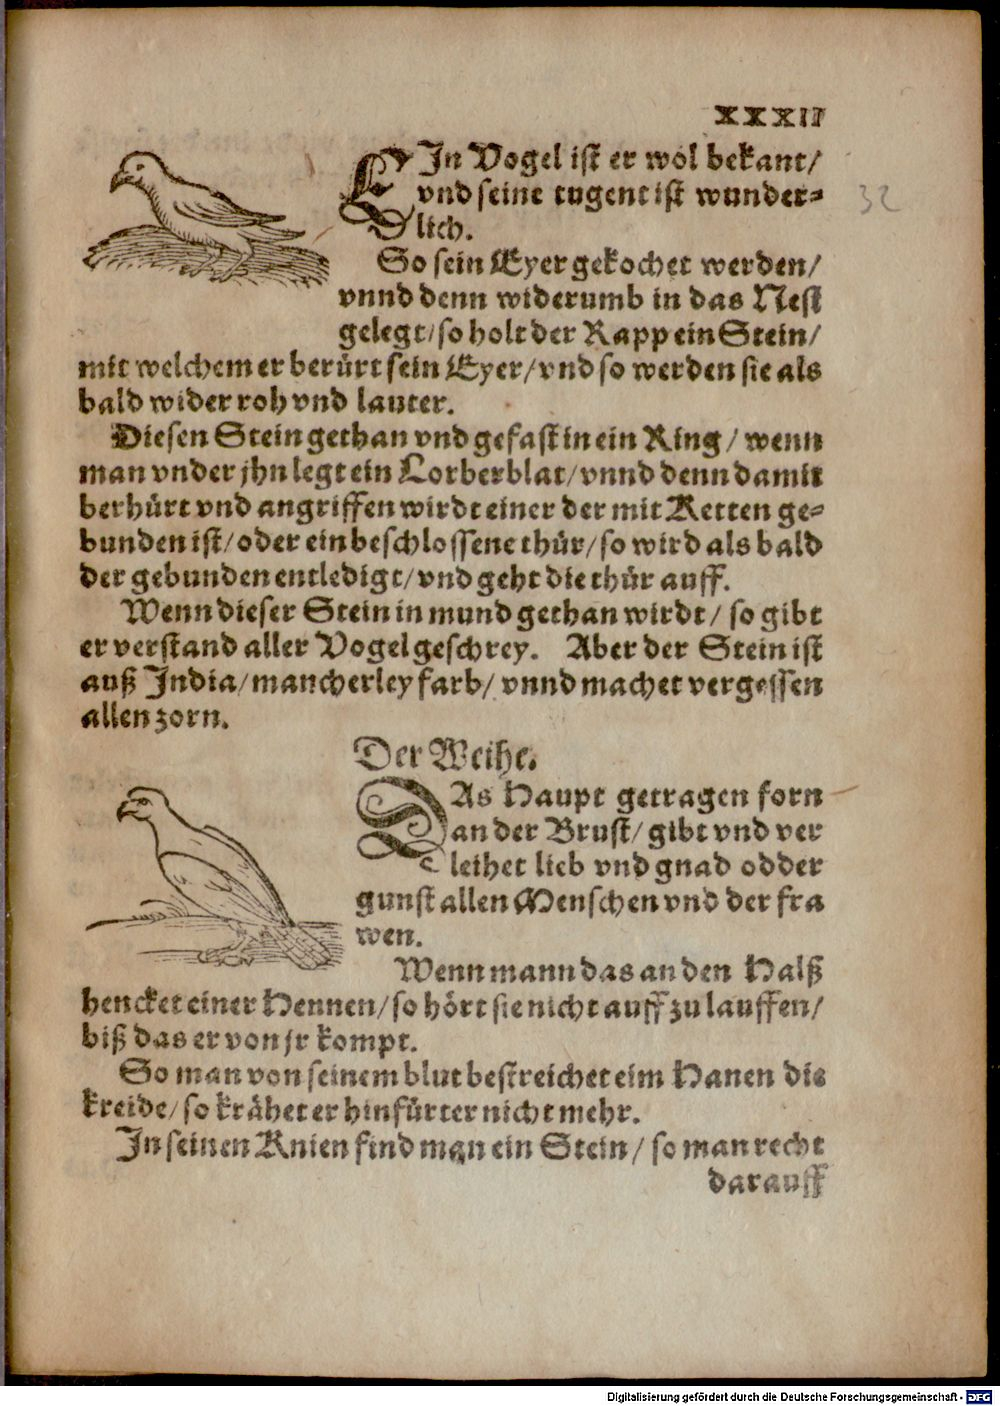 XXXII
EIn Vogel ist er wol bekant/
vnd seine tugent ist wunder-
lich.
32
So sein Eyer gekochet werden/
vnnd denn widerumb in das Nest
gelegt/so holt der Rapp ein Stein/
mit welchem er berürt sein Eyer/vnd so werden sie als
bald wider roh vnd lauter.
Diesen Stein gethan vnd gefast in ein Ring/ wenn
man vnder jhn legt ein Lorberblat/vnnd denn damit
berhürt vnd angriffen wirdt einer der mit Ketten ge-
bunden ist/oder ein beschlossene thür/so wird als bald
der gebunden entledigt/vnd geht die thür auff.
Wenn dieser Stein in mund gethan wirdt/ so gibt
er verstand aller Vogel geschrey. Aber der Stein ist
auß India/mancherley farb/ vnnd machet vergessen
allen zorn.
Der Weihe.
DAs Haupt getragen forn
an der Brust/ gibt vnd ver
leihet lieb vnd gnad odder
gunst allen Menschen vnd der fra
wen.
Wenn mann das an den Halß
hencket einer Hennen/so hört sie nicht auff zu lauffen/
biß das er von jr kompt.
So man von seinem blut bestreichet eim Hanen die
kreide/so krähet er hinfürter nicht mehr.
In seinen Knien find man ein Stein/ so man recht
darauff
Digitalisierung gefördert durch die Deutsche Forschungsgemeinschaft - DFG